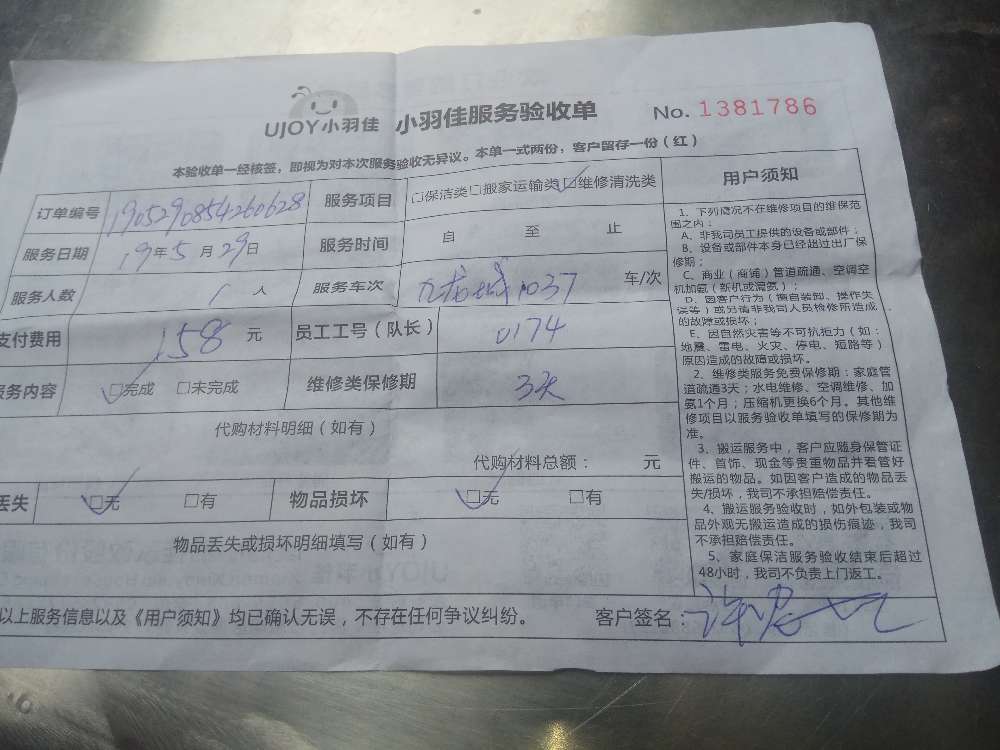 UJOY小羽佳 小羽佳服务验收单 No. 1381786
本验收单一经核签，即视为对本次服务验收无异议。本单一式两份，客户留存一份（红）
订单编号 1905290854260628 服务项目 □保洁类□搬家运输类□维修清洗类
服务日期 19年5月29日 服务时间 自 至 止
服务人数 1 人 服务车次 九龙城1037 车/次
支付费用 158 元 员工工号（队长） 0174
服务内容 □完成 □未完成 维修类保修期 3天
代购材料明细（如有）
代购材料总额： 元
丢失 □无 □有 物品损坏 □无 □有
物品丢失或损坏明细填写（如有）
以上服务信息以及《用户须知》均已确认无误，不存在任何争议纠纷。 客户签名：
用户须知
1、下列情况不在维修项目的维保范
围之内：
A、非我司员工提供的设备或部件；
B、设备或部件本身已经超过出厂保
修期；
C、商业（商铺）管道疏通、空调空
机加氨（新机或漏氨）；
D、因客户行为（擅自装卸、操作失
误等）或另请非我司人员检修所造成
的故障或损坏；
E、因自然灾害等不可抗拒力（如：
地震、雷电、火灾、停电、短路等）
原因造成的故障或损坏。
2、维修类服务免费保修期：家庭管
道疏通3天；水电维修、空调维修、加
氨1个月；压缩机更换6个月。其他维
修项目以服务验收单填写的保修期为
准。
3、搬运服务中，客户应随身保管证
件、首饰、现金等贵重物品并看管好
搬运的物品。如因客户造成的物品丢
失/损坏，我司不承担赔偿责任。
4、搬运服务验收时，如外包装或物
品外观无搬运造成的损伤痕迹，我司
不承担赔偿责任。
5、家庭保洁服务验收结束后超过
48小时，我司不负责上门返工。